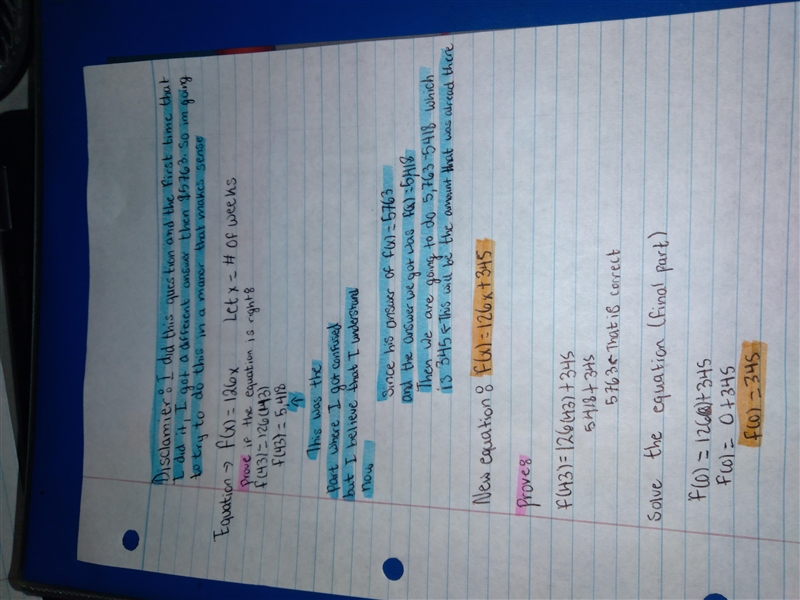 Disclamier: I did this question and the first time that
I did it, I got a different answer then $5763. So im going
to try to do this in a maner that makes sense
Equation → f(x) = 126x Let x = # of weeks
Prove if the equation is right:
f(43) = 126(43)
f(43) = 5,418
↑
This was the
part where I got confused
but I believe that I understand
now
Since his answer of f(x) = 5763
and the answer we got was f(x) = 5,418
Then we are going to do 5,763 - 5418 which
is 345 ← This will be the amount that was alread there
New equation: f(x) = 126x + 345
Prove:
f(43) = 126(43) + 345
5418 + 345
5763 ← That is correct
Solve the equation (final part)
f(0) = 126(0) + 345
f(0) = 0 + 345
f(0) = 345